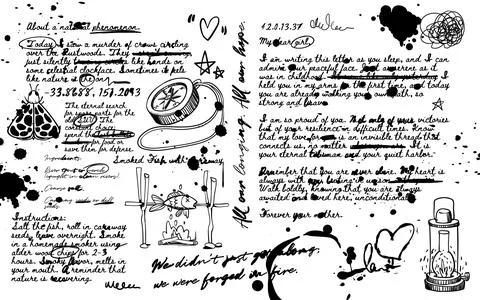 About a natural phenomenon
Today I saw a murder of crows circling
over the Dustwoods. They
just silently like hands on
some celestial clockface. Sometimes it feels
like nature is
-33.8688, 151.2093
The eternal search
for parts for the
The
constant choice:
spend the last
for food or
save them for defense
Ingredients:
Smoked Fish with
Instructions:
Salt the fish, roll in caraway
seeds, leave overnight. Smoke
in a homemade smoker using
alder wood chips for 2-3
hours. Smoky flavor, melts in
your mouth. A reminder that
nature is recovering.
All our longing. All our hope.
We didn't just go along,
we were forged in fire.
42.0.13.37
My dear girl,
I am writing this letter as you sleep, and I can
admire your peaceful face. Just as serene as it
was in childhood.
I held you in my arms for the first time, and today
you are already walking your own path, so
strong and brave
I am so proud of you. Not only of your victories
but of your resilience in difficult times. Know
that my love for you is an invisible thread that
connects us, no matter It is
your eternal talisman and your quiet harbor.
Remember that you are never alone. My heart is
always with you
Walk boldly, knowing that you are always
awaited and loved here, unconditionally
Forever your mother.